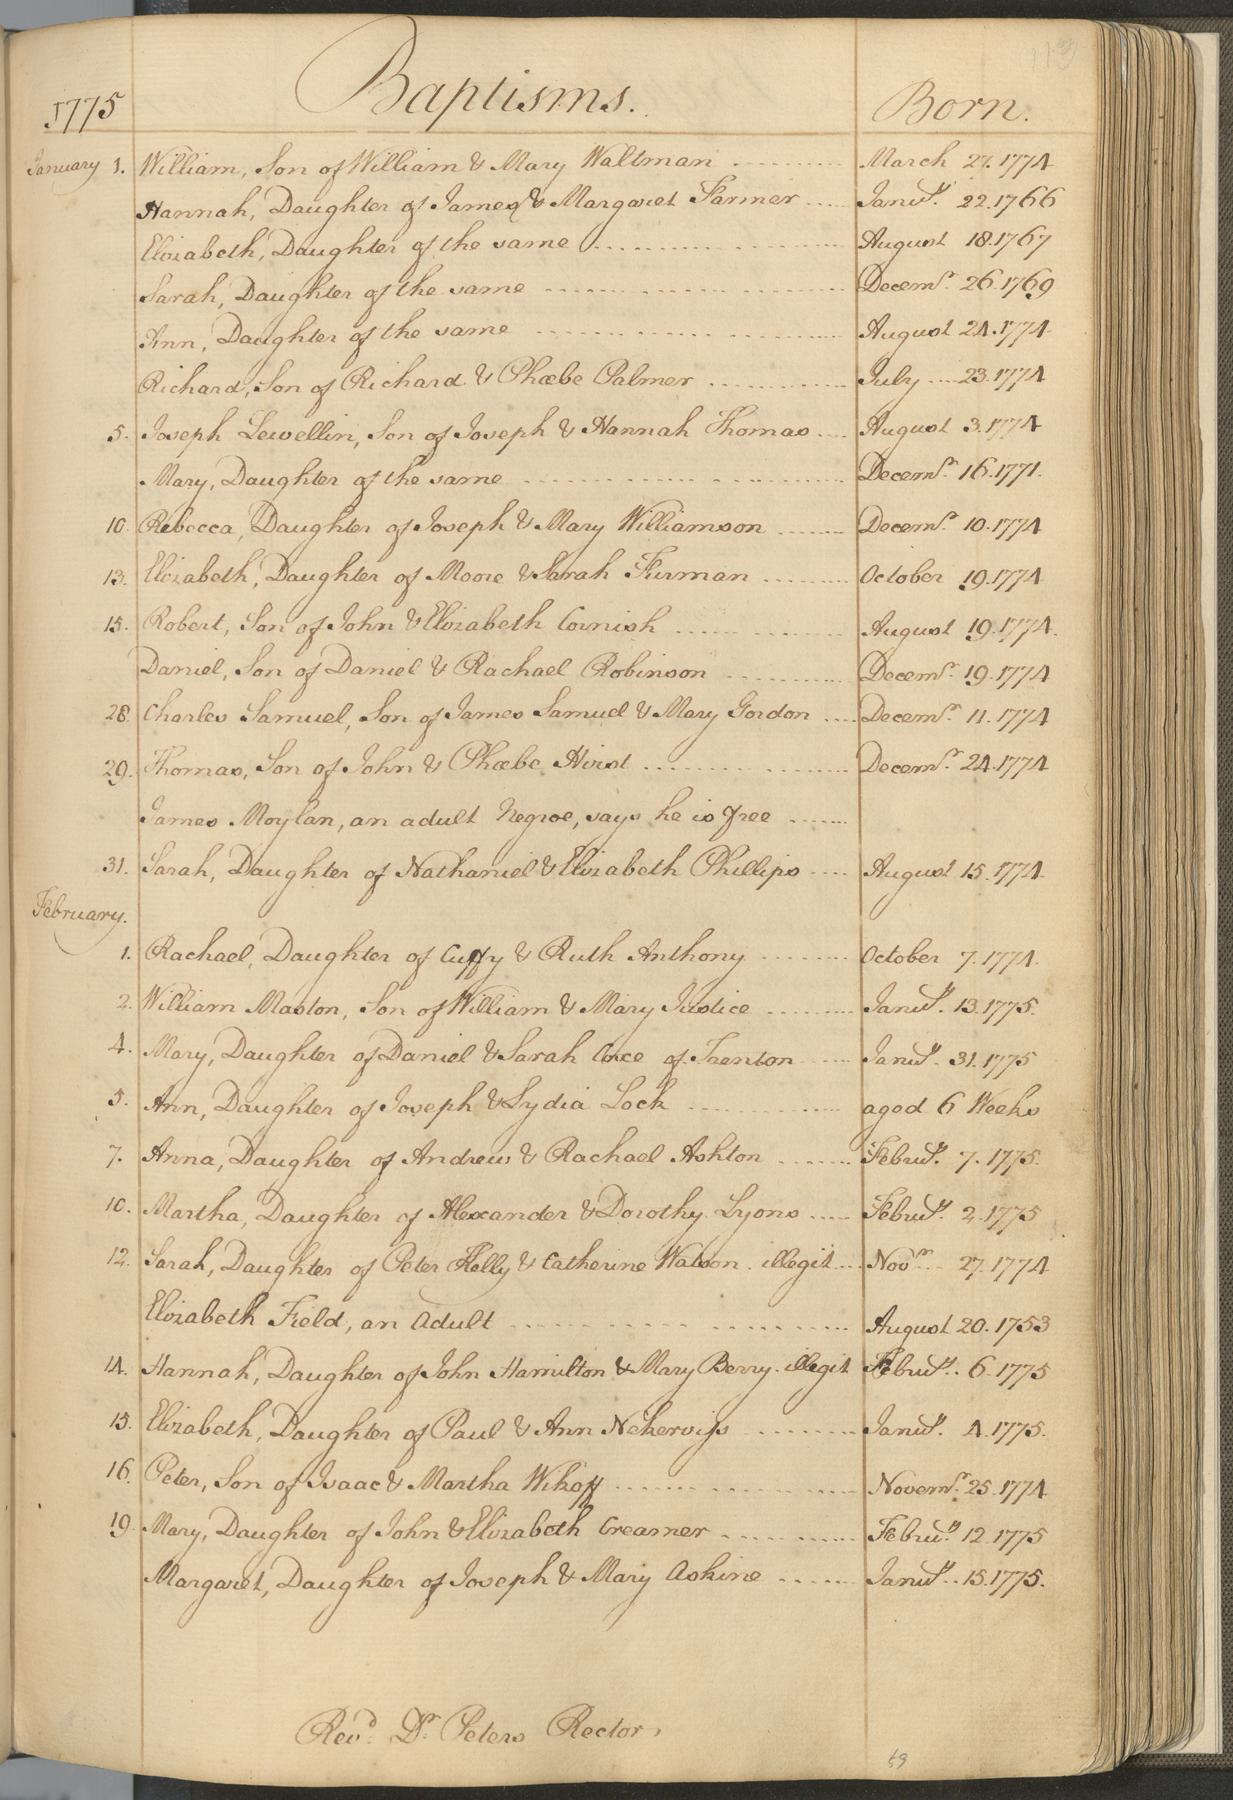 113
1775 Baptisms. Born.
January 1. William, Son of William & Mary Waltman ........ March 27. 1774
Hannah, Daughter of James & Margaret Farmer ..... Janu.y 22. 1766
Elizabeth, Daughter of the same ........ August 18. 1767
Sarah, Daughter of the same ........ Decem.r 26. 1769
Ann, Daughter of the same ........ August 24. 1774
Richard, Son of Richard & Phœbe Palmer ........ July .... 23. 1774
5. Joseph Lewellin, Son of Joseph & Hannah Thomas .... August 3. 1774
Mary, Daughter of the same ........ Decem.r 16. 1771.
10. Rebecca, Daughter of Joseph & Mary Williamson ........ Decem.r 10. 1774
13. Elizabeth, Daughter of Moore & Sarah Furman ........ October 19. 1774
15. Robert, Son of John & Elizabeth Cornish ........ August 19. 1774.
Daniel, Son of Daniel & Rachael Robinson ........ Decem.r 19. 1774
28. Charles Samuel, Son of James Samuel & Mary Gordon .... Decem.r 11. 1774
29. Thomas, Son of John & Phœbe Hirst ........ Decem.r 24. 1774
James Moylan, an adult Negroe, says he is free ........
31. Sarah, Daughter of Nathaniel & Elizabeth Phillips .... August 15. 1774
February.
1. Rachael, Daughter of Cuffy & Ruth Anthony ........ October 7. 1774.
2. William Maston, Son of William & Mary Justice ........ Janu.y 13. 1775.
4. Mary, Daughter of Daniel & Sarah of Trenton ..... Janu.y 31. 1775
5. Ann, Daughter of Joseph & Lydia Lock ........ aged 6 Weeks
7. Anna, Daughter of Andrew & Rachael Ashton ........ Febru.y 7. 1775.
10. Martha, Daughter of Alexander & Dorothy Lyons ..... Febru.y 2. 1775
12. Sarah, Daughter of Peter Kelly & Catherine Watson. illegit... Nov.r .. 27. 1774
Elizabeth Field, an Adult ........ August 20. 1753
14. Hannah, Daughter of John Hamilton & Mary Berry. illegit Febru.y. 6. 1775
15. Elizabeth, Daughter of Paul & Ann Nehervis ........ Janu.y. 4. 1775.
16. Peter, Son of Isaac & Martha Wikoff ........ Novem.r 25. 1774
19. Mary, Daughter of John & Elizabeth Creamer ........ Febru.y 12. 1775
Margaret, Daughter of Joseph & Mary Askine ........ Janu.y.. 15. 1775.
Rev.d D.r Peters Rector,
59